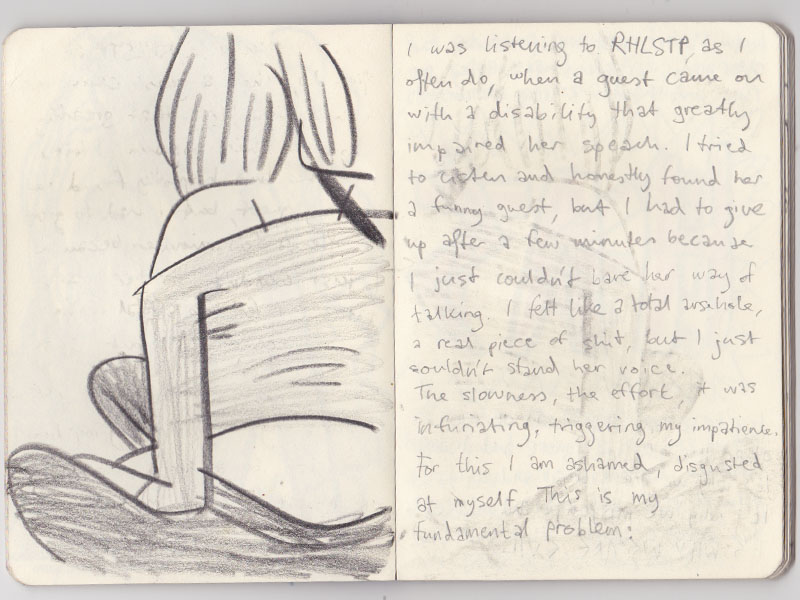 I was listening to RHLSTP, as I
often do, when a guest came on
with a disability that greatly
impaired her speach. I tried
to listen and honestly found her
a funny guest, but I had to give
up after a few minutes because
I just couldn't bare her way of
talking. I felt like a total arsehole,
a real piece of shit, but I just
couldn't stand her voice.
The slowness, the effort, it was
infuriating, triggering my impatience.
For this I am ashamed, disgusted
at myself. This is my
fundamental problem: